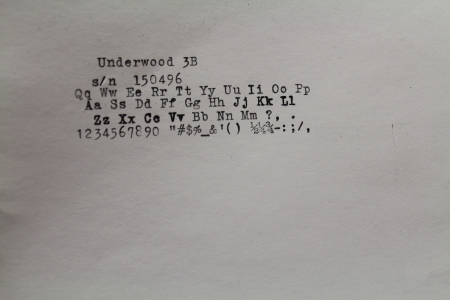 Underwood 3B
s/n 150496
Qq Ww Ee Rr Tt Yy Uu Ii Oo Pp
Aa Ss Dd Ff Gg Hh Jj Kk Ll
Zz Xx Cc Vv Bb Nn Mm ?, .
1234567890 "#$%_&'() ½¼¾-:;/,